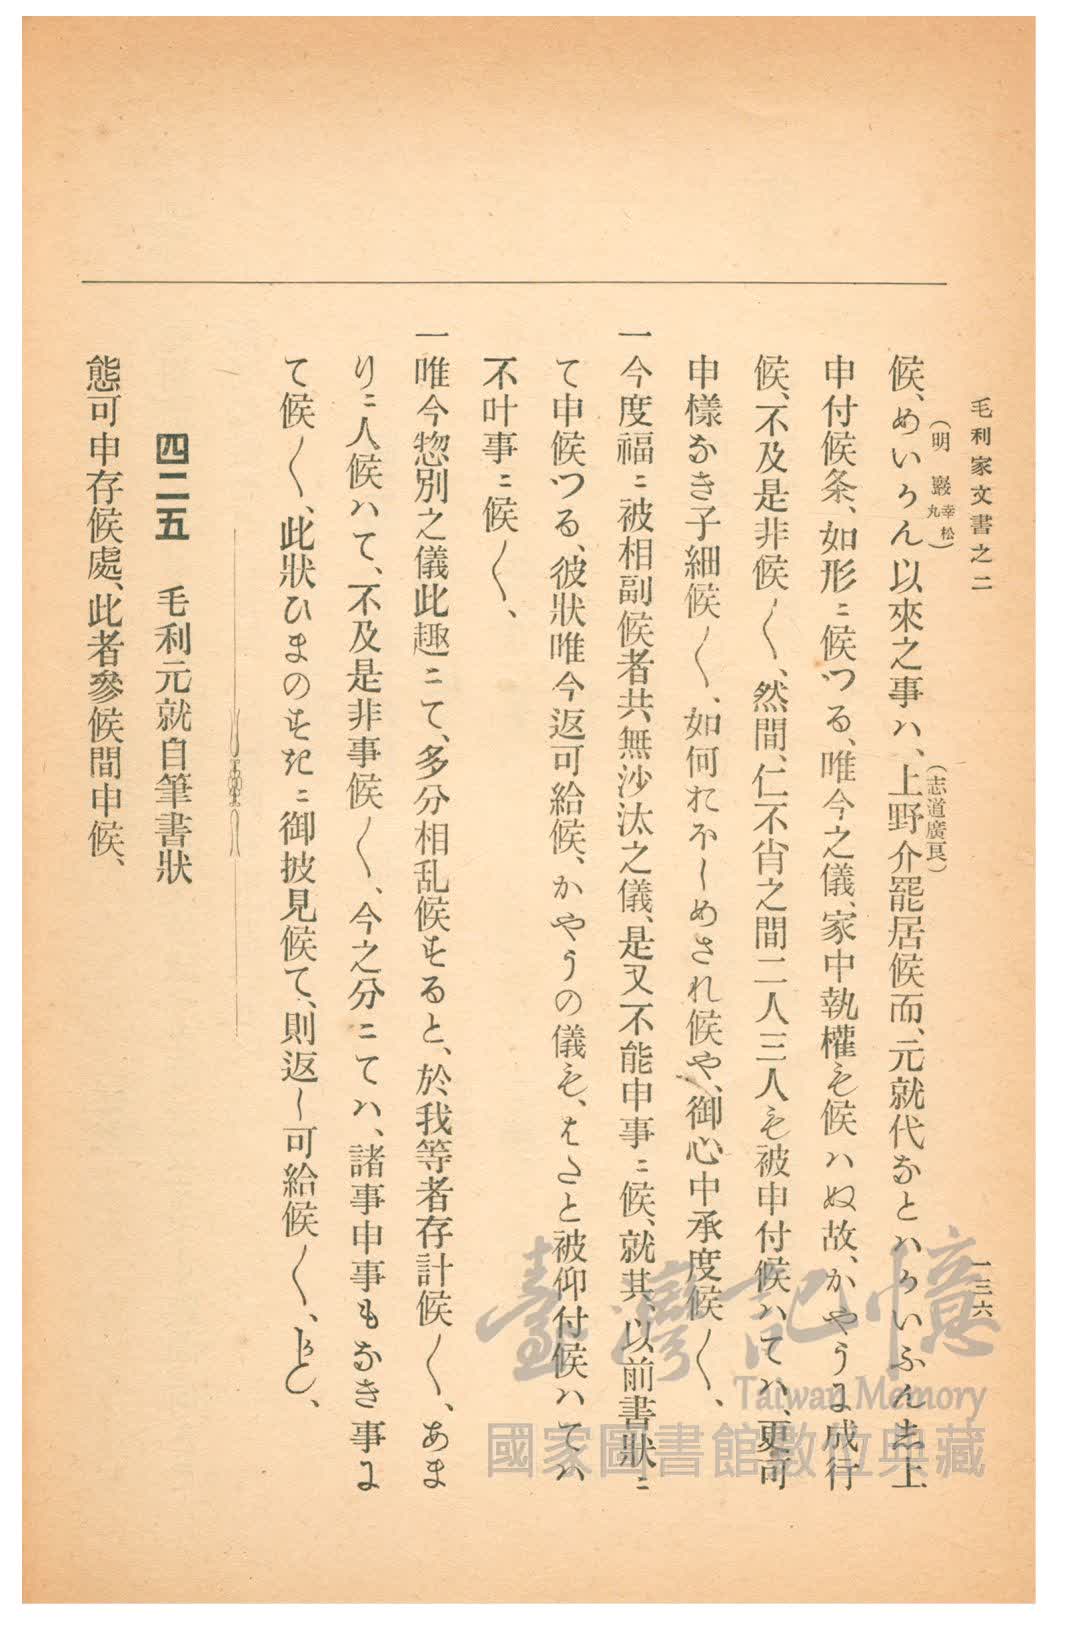 毛利家文書之二
一三六
(明巖 幸松丸)
(志道廣良)
候、めいかん以來之事ハ、上野介罷居候而、元就代なとハかいふん志上
申付候条、如形ニ候つる、唯今之儀、家中執權も候ハぬ故、かやうに成行
候、不及是非候〳〵、然間、仁不肖之間二人三人も被申付候ハてハ、更可
申樣なき子細候〳〵、如何おほしめされ候や、御心中承度候〳〵、
一今度福ニ被相副候者共、無沙汰之儀、是又不能申事ニ候、就其、以前書狀ニ
て申候つる、彼狀唯今返可給候、かやうの儀も、はたと被仰付候ハてハ
不叶事ニ候〳〵、
一唯今惣別之儀此趣ニて、多分相乱候すると、於我等者存計候〳〵、あま
りニ人候ハて、不及是非事候〳〵、今之分ニてハ、諸事申事もなき事に
て候〳〵、此狀ひまのすきニ御披見候て、則返し可給候〳〵、
四二五　毛利元就自筆書狀
態可申存候處、此者參候間申候、
臺灣記憶
Taiwan Memory
國家圖書館數位典藏